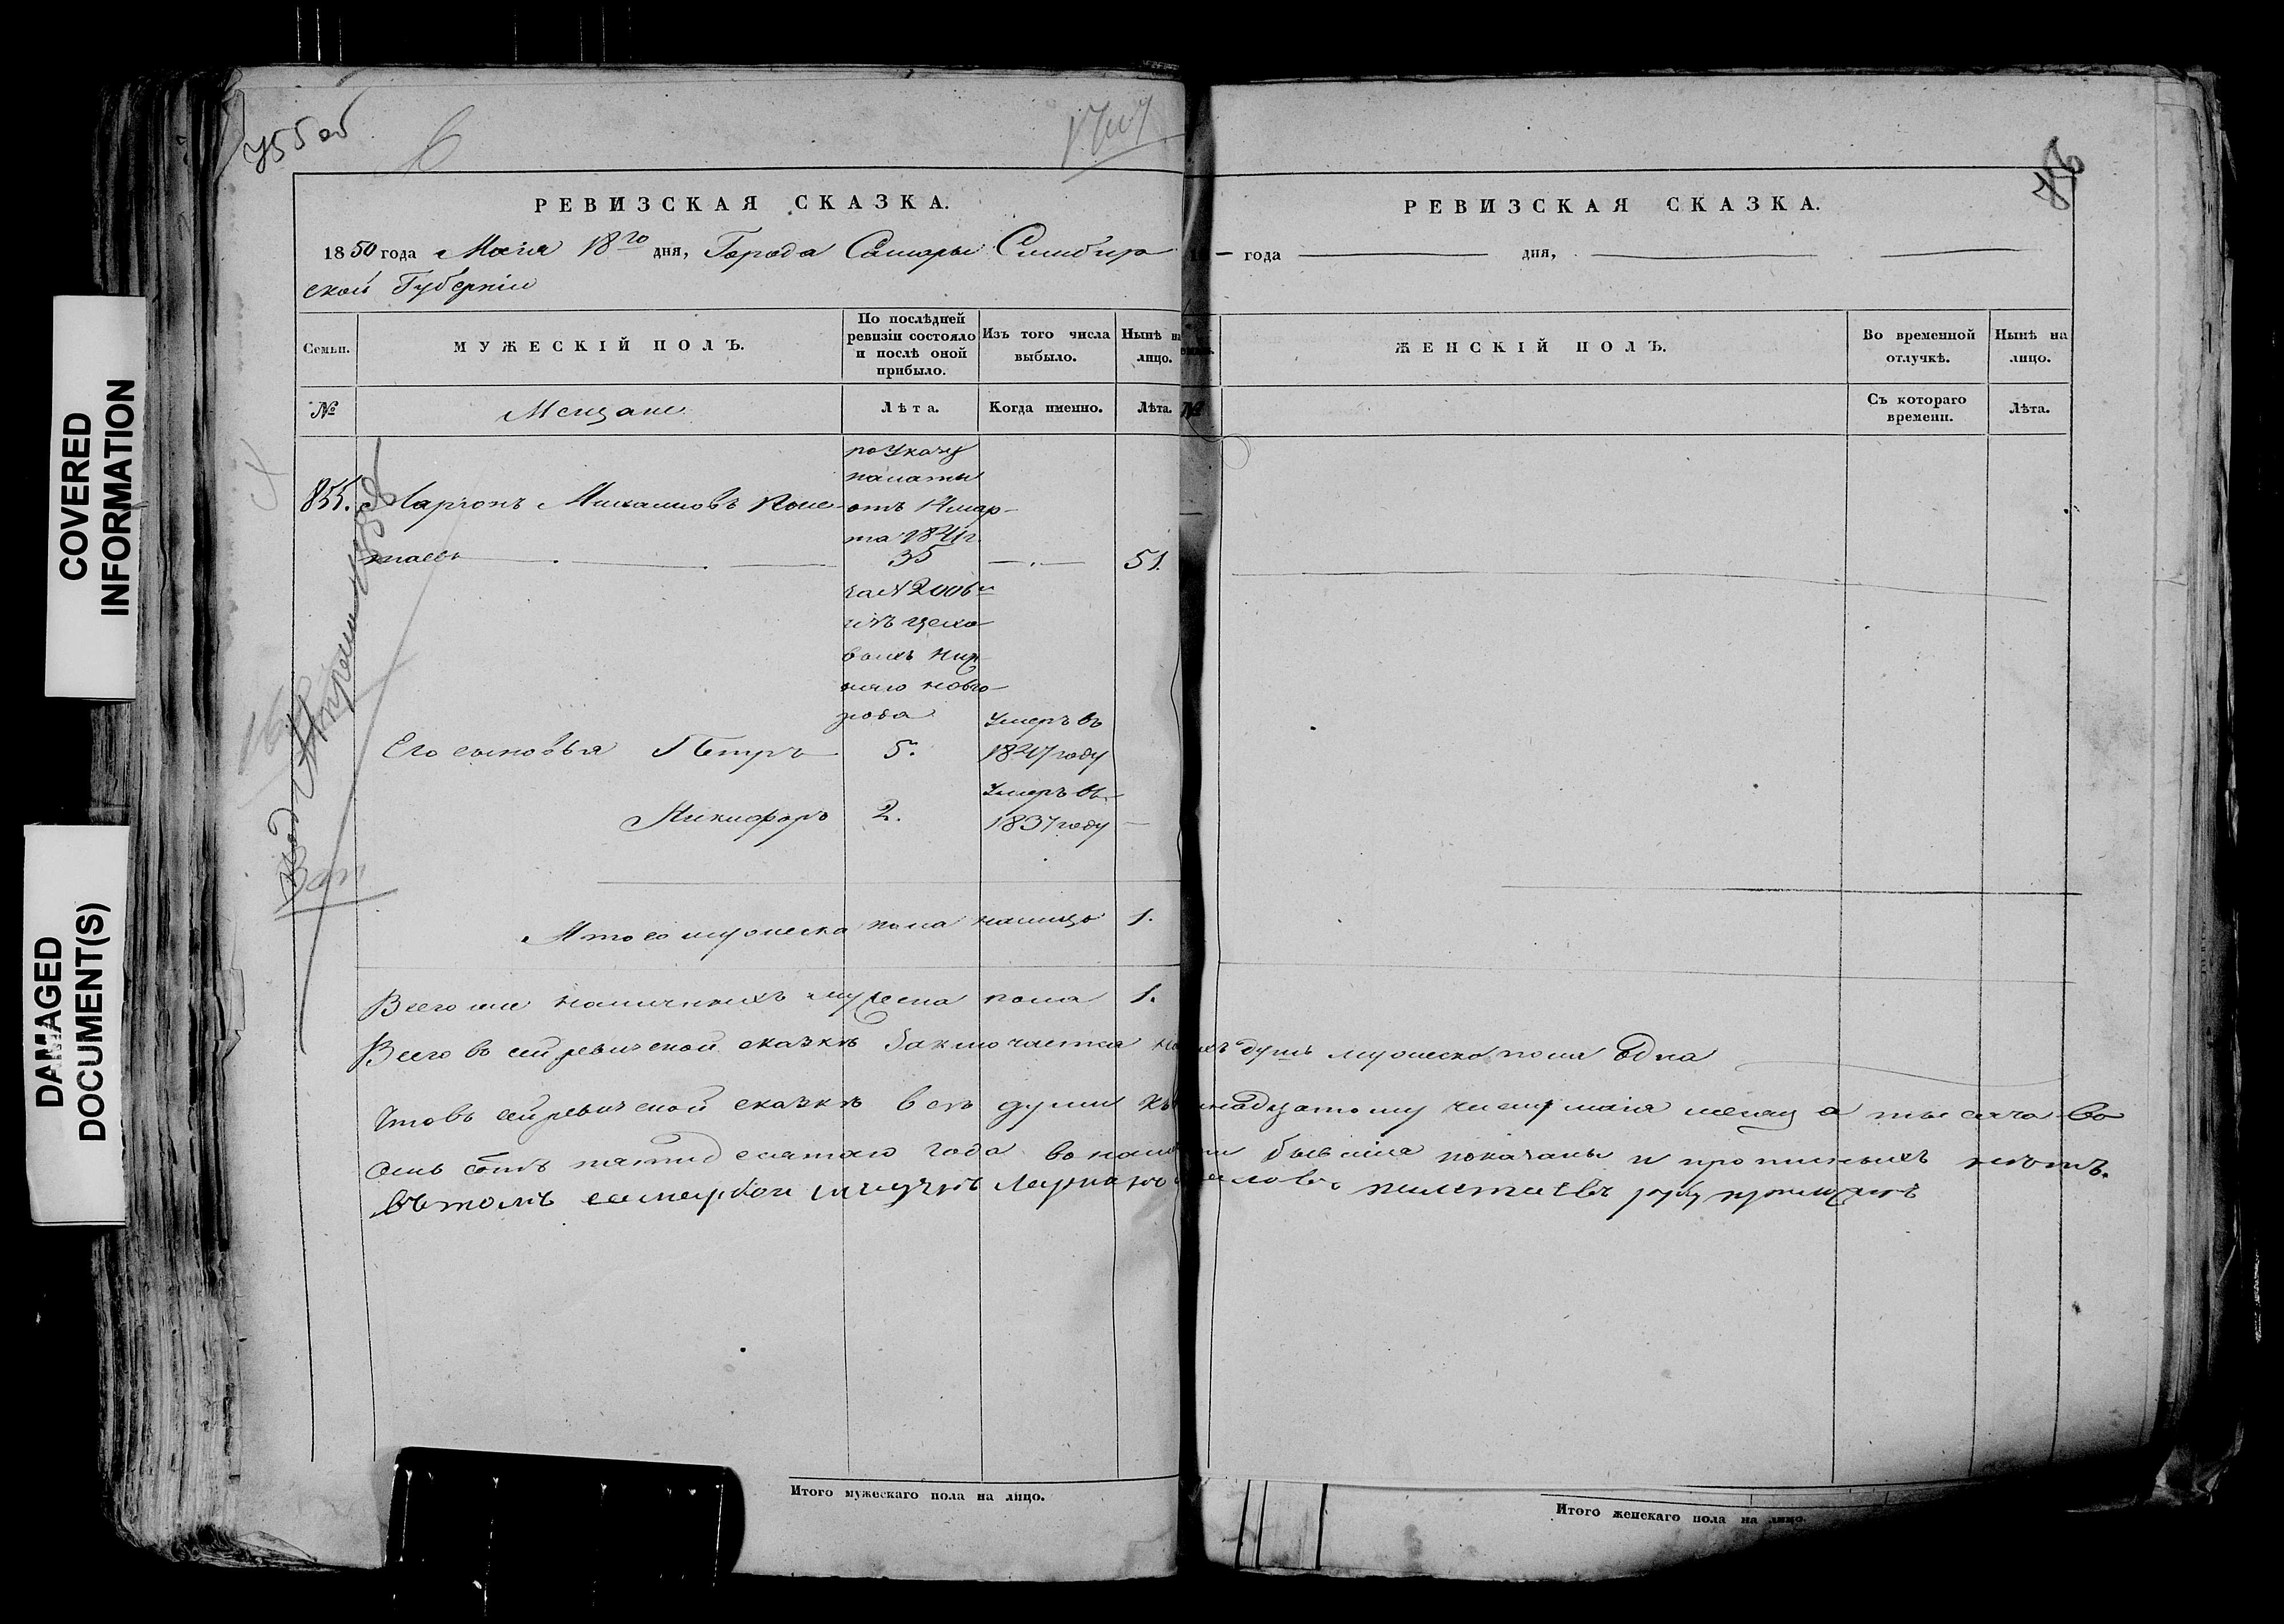 COVERED INFORMATION
DAMAGED DOCUMENT(S)
755 об
6
РЕВИЗСКАЯ СКАЗКА.
1850 года Маия 18го дня, Города Самары Симбир
ской Губернiи
Семьи.
МУЖЕСКIЙ ПОЛЪ.
По послѣдней ревизiи состояло и послѣ оной прибыло.
Изъ того числа выбыло.
Нынѣ на лицо.
№
Мещане
Лѣта.
Когда именно.
Лѣта.
по Указу
палаты
855. Ларiонъ Михаиловъ
отъ 14 мар
та 1841г.
35 51.
за № 2006м
изъ цехо
выхъ Ниж
няго Новго
рода
Его сыновья Петръ 5. Умеръ въ
1847 году
Никифоръ 2. Умеръ въ
1837 году
Итого мужеска пола налицо 1.
Всего же наличныхъ мужеска пола 1.
Всего въ сей ревизской сказкѣ заключается душъ мужеска пола Одна
Что въ сей ревизской сказкѣ всѣ души къ надцатому числу маiя месяца тысяча во
семь сотъ пятидесятаго года бывшiя показаны и прописныхъ нѣтъ.
въ томъ
Итого мужескаго пола на лицо.
РЕВИЗСКАЯ СКАЗКА.
года дня,
ЖЕНСКIЙ ПОЛЪ.
Во временной отлучкѣ.
Нынѣ на лицо.
№
Съ котораго времени.
Лѣта.
Итого женскаго пола на лицо.